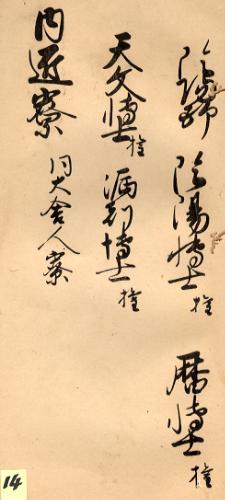 陰陽博士 権 暦博士 権
天文博士 権 漏刻博士 権
同大舎人寮
14